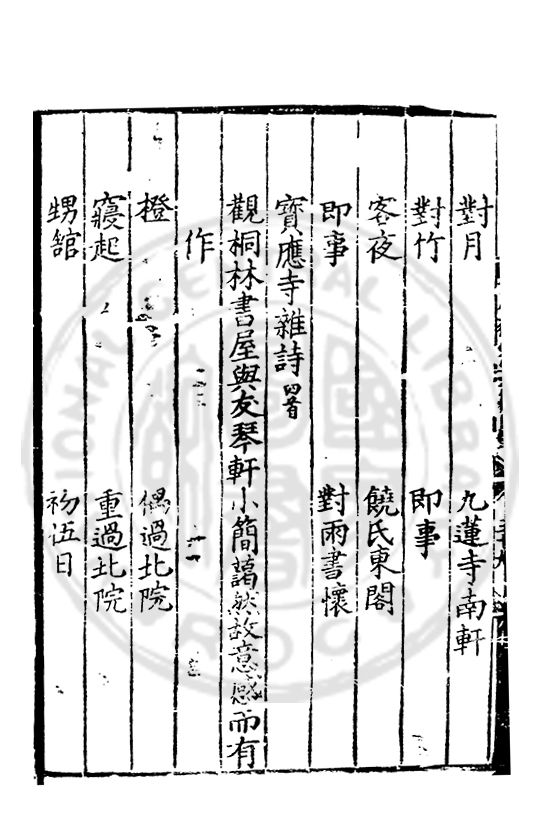 對月　九蓮寺南軒
對竹　即事
客夜　饒氏東閣
即事　對雨書懷
寶應寺雜詩四首
觀桐林書屋與友琴軒小簡藹然故意感而有
作
橙　偶過北院
寢起　重過北院
甥舘　初伍日